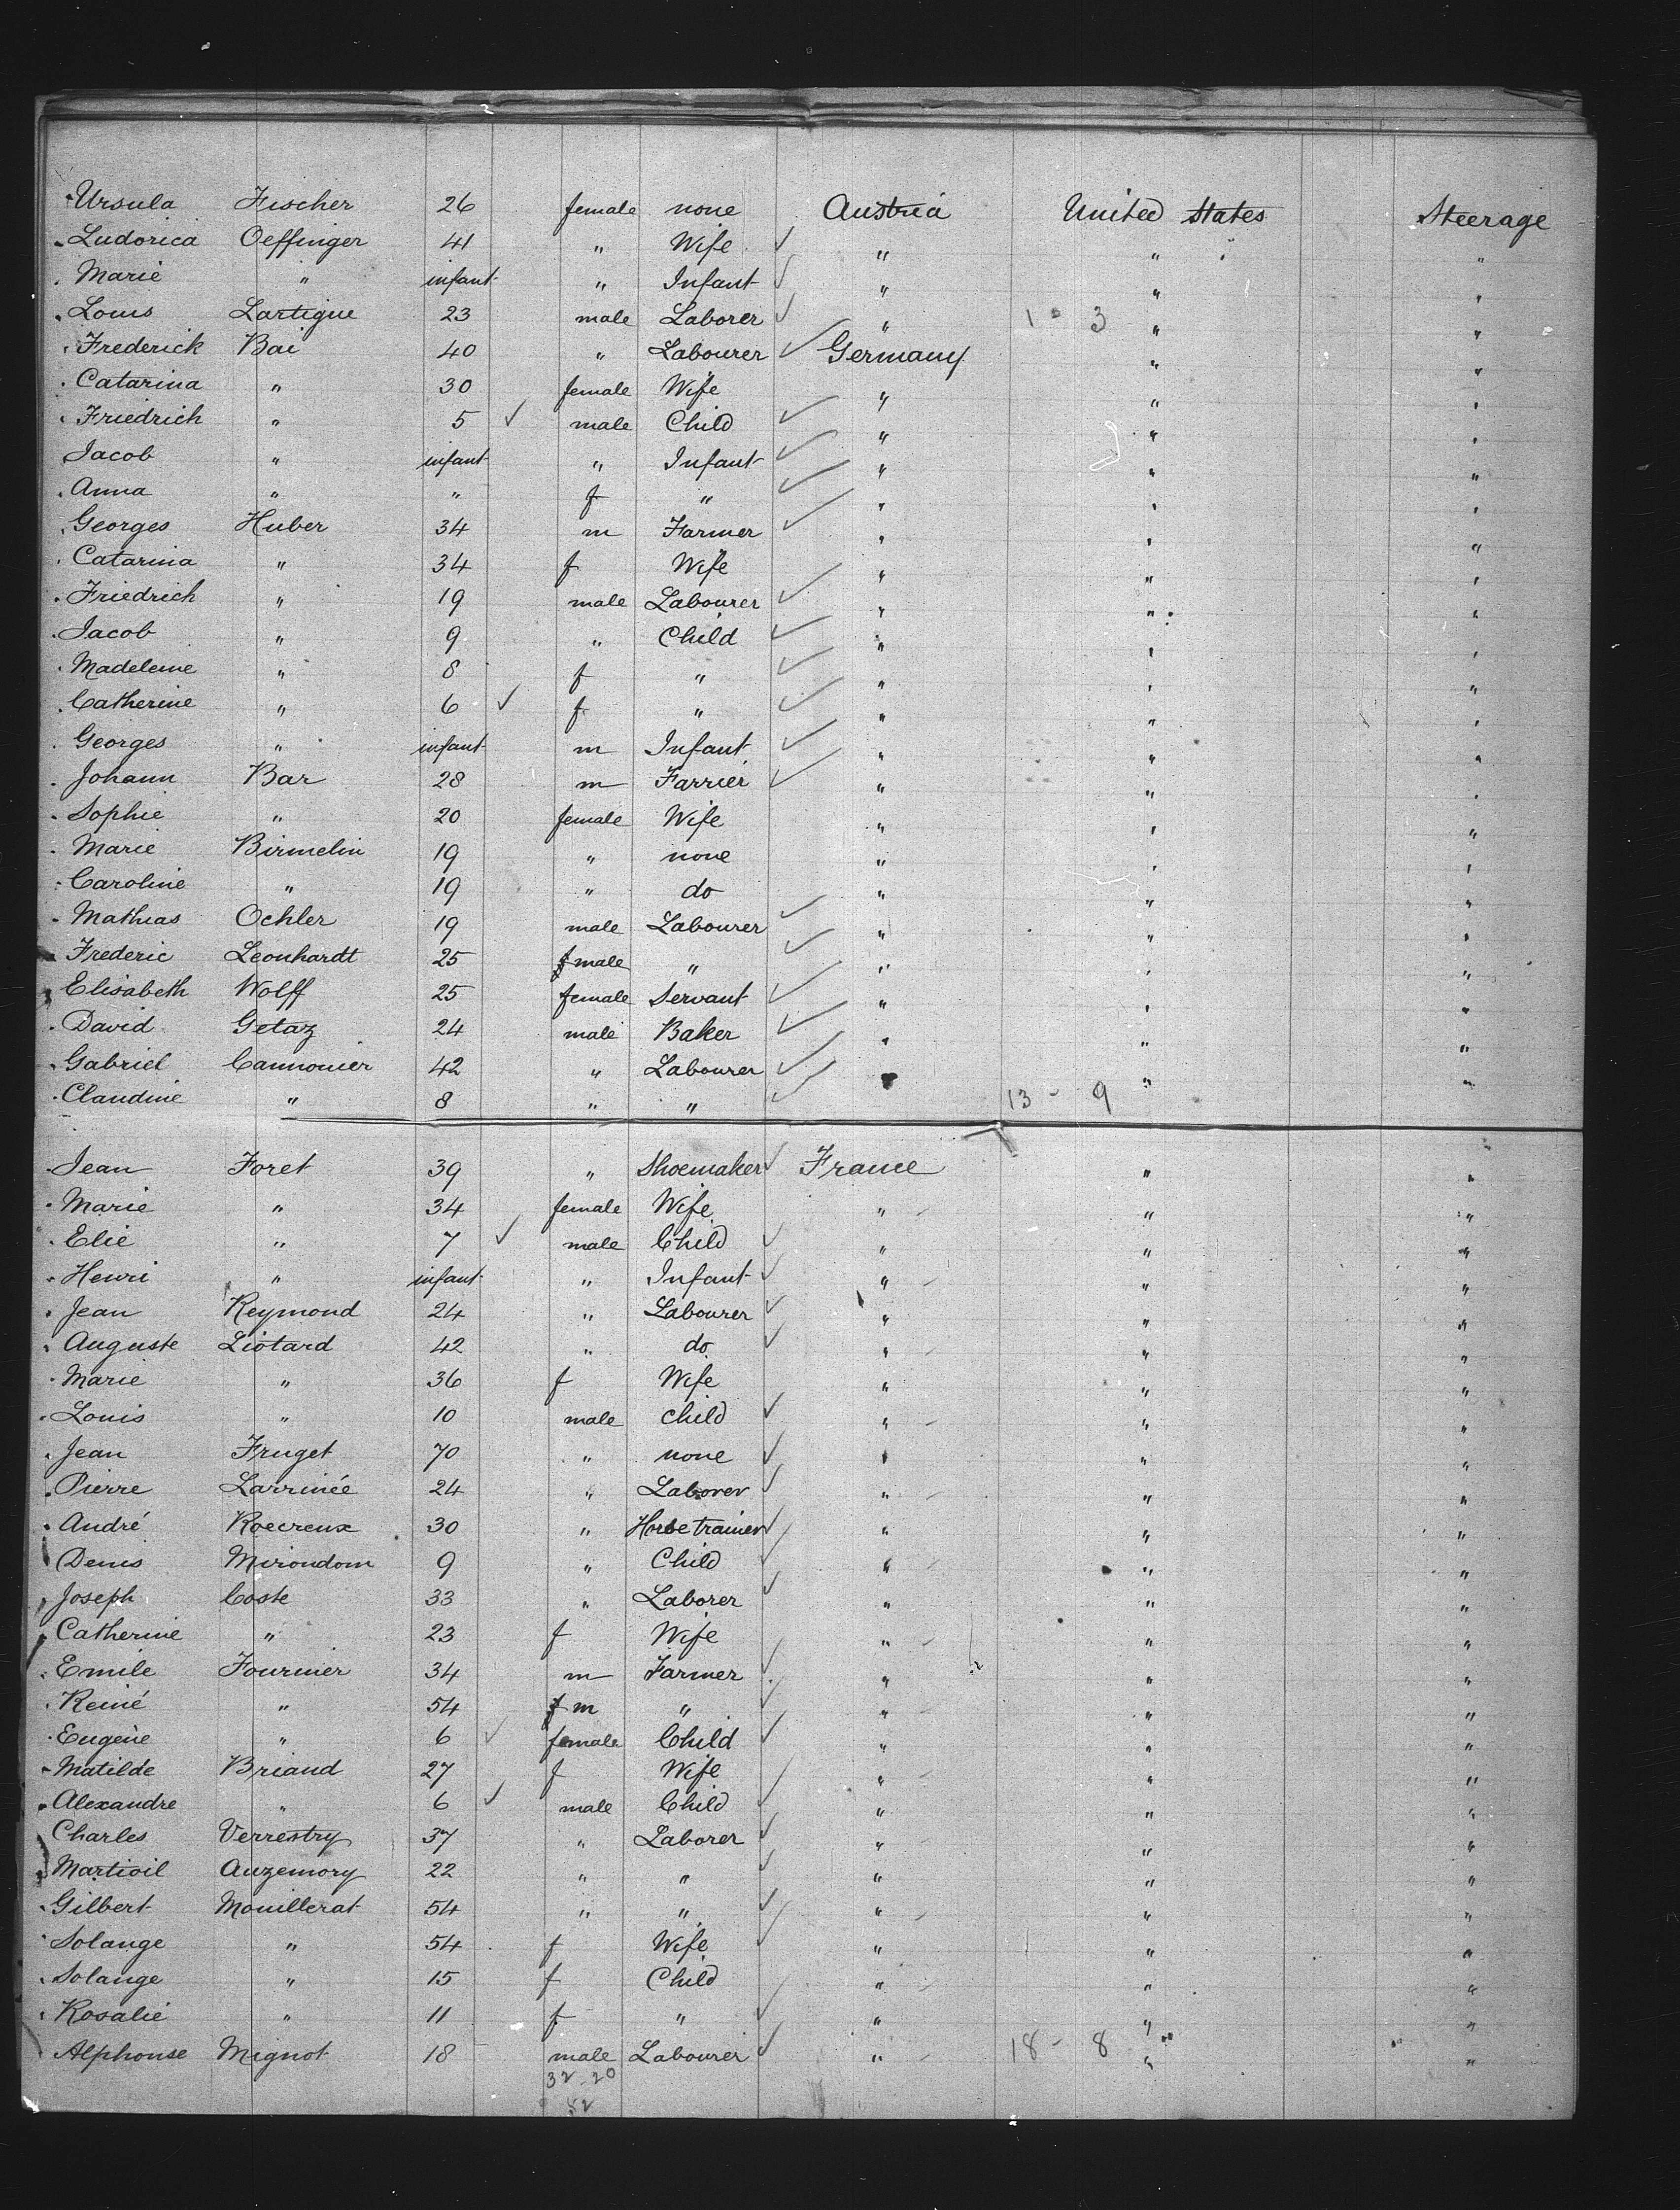 Ursula Fischer 26 female none Austria United States Steerage
Ludovica Oeffinger 41 " Wife " " "
Marie " infant " Infant " " "
Louis Lartigue 23 male Laborer " 1 - 3 " "
Frederick Bai 40 " Labourer Germany " "
Catarina " 30 female Wife " " "
Friedrich " 5 male Child " " "
Jacob " infant " Infant " " "
Anna " " f " " " "
Georges Huber 34 m Farmer " " "
Catarina " 34 f Wife " " "
Friedrich " 19 male Labourer " " "
Jacob " 9 " Child " " "
Madeleine " 8 f " " " "
Catherine " 6 f " " " "
Georges " infant m Infant " " "
Johann Bar 28 m Farrier " " "
Sophie " 20 female Wife " " "
Marie Birmelin 19 " none " " "
Caroline " 19 " do " " "
Mathias Oehler 19 male Labourer " " "
Frederic Leonhardt 25 male " " " "
Elisabeth Wolff 25 female Servant " " "
David Getaz 24 male Baker " " "
Gabriel Cannonier 42 " Labourer " " "
Claudine " 8 " " 13 - 9
Jean Foret 39 " Shoemaker France " "
Marie " 34 female Wife " " "
Elie " 7 male Child " " "
Henri " infant " Infant " " "
Jean Reymond 24 " Labourer " " "
Auguste Liotard 42 " do " " "
Marie " 36 f Wife " " "
Louis " 10 male child " " "
Jean Fruget 70 " none " " "
Pierre Larrinée 24 " Laborer " " "
André Roecreux 30 " Horse trainer " " "
Denis Mirondom 9 " Child " " "
Joseph Coste 33 " Laborer " " "
Catherine " 23 f Wife " " "
Emile Fournier 34 m Farmer " " "
Reiné " 54 m " " " "
Eugène " 6 female Child " " "
Matilde Briand 27 f Wife " " "
Alexandre " 6 male Child " " "
Charles Verrestry 37 " Laborer " " "
Martioil Auzemory 22 " " " " "
Gilbert Mouillerat 54 " " " " "
Solange " 54 f Wife " " "
Solange " 15 f Child " " "
Rosalie " 11 f " " " "
Alphonse Mignot 18 male Labourer " 18 - 8 " "
32 - 20
52